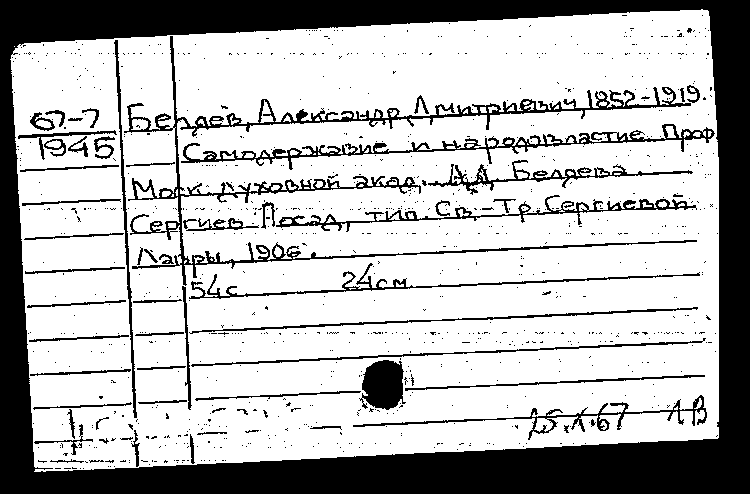 67-7 Беляев, Александр Дмитриевич, 1852-1919.
1945 Самодержавие и народовластие. Проф.
Моск. духовной акад. А.Д. Беляева.
Сергиев Посад, тип. Св.-Тр. Сергиевой
Лавры, 1906.
54с. 24см.
25.X.67 ЛВ